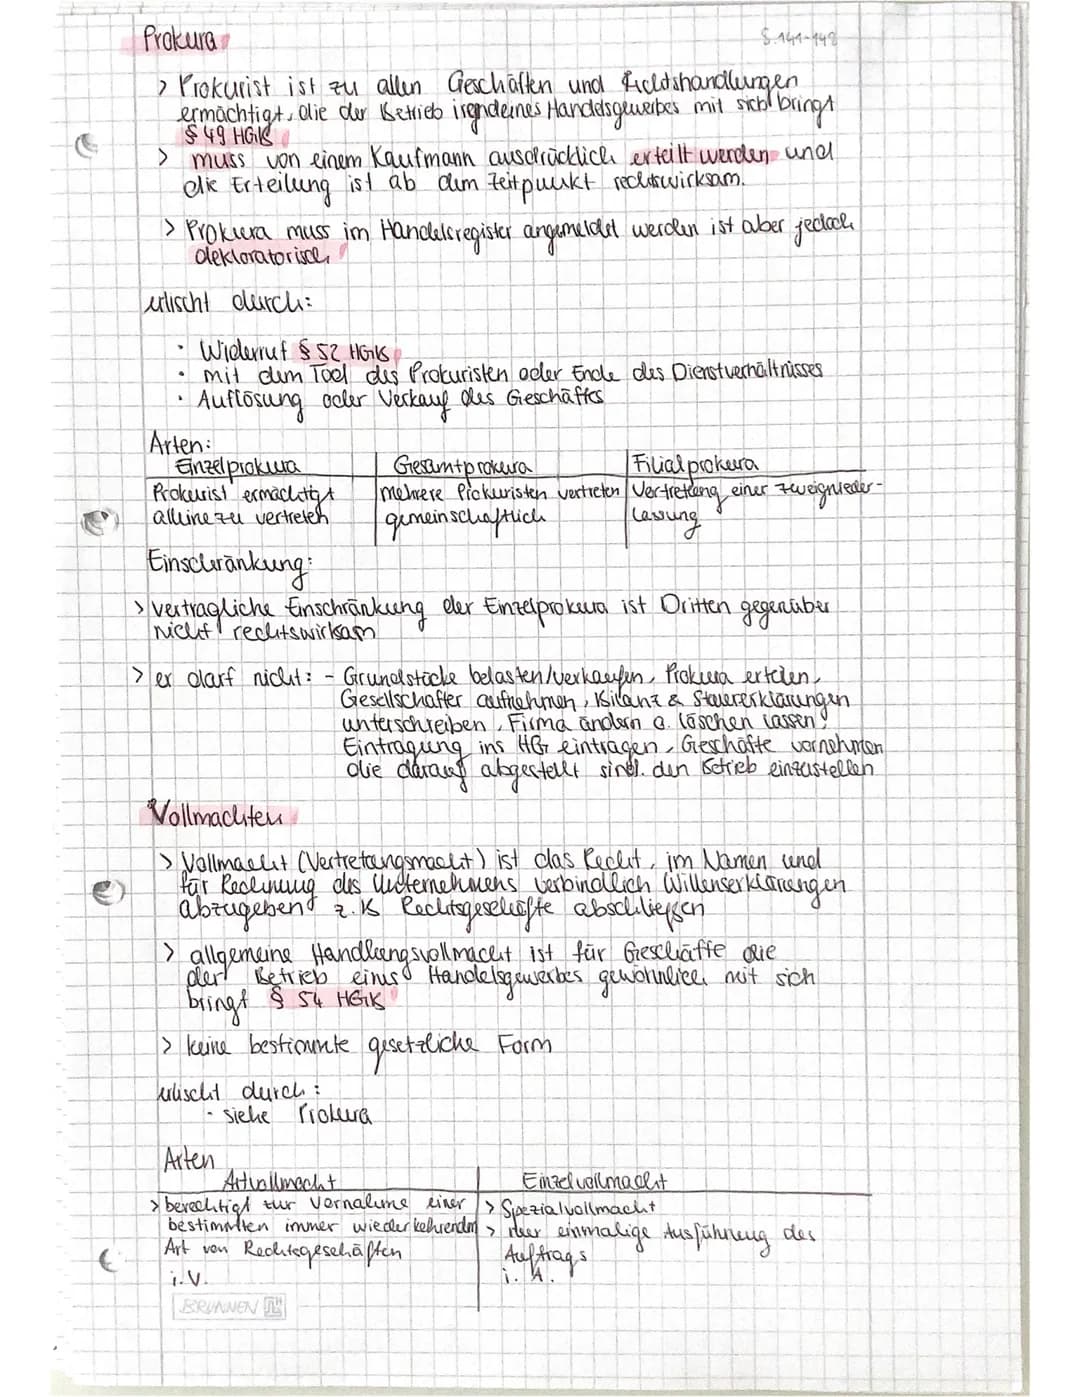 Prokura
S. 141-148
> Prokurist ist zu allen Geschäften und Rechtshandlungen
ermächtigt, die der Betrieb irgendeines Handelsgewerbes mit sich bringt
§ 49 HGB
> muss von einem Kaufmann ausdrücklich erteilt werden und
die Erteilung ist ab dem Zeitpunkt rechtswirksam.
> Prokura muss im Handelsregister angemeldet werden ist aber jedoch
dekloratorisch
erlischt durch:
· Widerruf § 52 HGB
· mit dem Tod des Prokuristen oder Ende des Dienstverhältnisses
· Auflösung oder Verkauf des Geschäfts
Arten:
Einzelprokura Gesamtprokura Filialprokura
Prokurist ermächtigt mehrere Prokuristen vertreten Vertretung einer Zweignieder-
alleine zu vertreten gemeinschaftlich lassung
Einschränkung:
> vertragliche Einschränkung der Einzelprokura ist Dritten gegenüber
nicht rechtswirksam
> er darf nicht: - Grundstücke belasten/verkaufen, Prokura erteilen,
Gesellschafter aufnehmen, Bilanz & Steuererklärungen
unterschreiben, Firma ändern o. löschen lassen,
Eintragung ins HG eintragen, Geschäfte vornehmen
die darauf abgestellt sind. den Betrieb einzustellen
Vollmachten
> Vollmacht (Vertretungsmacht) ist das Recht, im Namen und
für Rechnung des Unternehmens verbindlich Willenserklärungen
abzugeben z.B Rechtsgeschäfte abschließen
> allgemeine Handlungsvollmacht ist für Geschäfte die
der Betrieb eines Handelsgewerbes gewöhnlich mit sich
bringt § 54 HGB
> keine bestimmte gesetzliche Form
erlischt durch:
· siehe Prokura
Arten
Artvollmacht Einzelvollmacht
> berechtigt zur Vornahme einer > Spezialvollmacht
bestimmten immer wiederkehrenden > nur einmalige Ausführung des
Art von Rechtsgeschäften Auftrags
i.V. i.A.
BRUNNEN